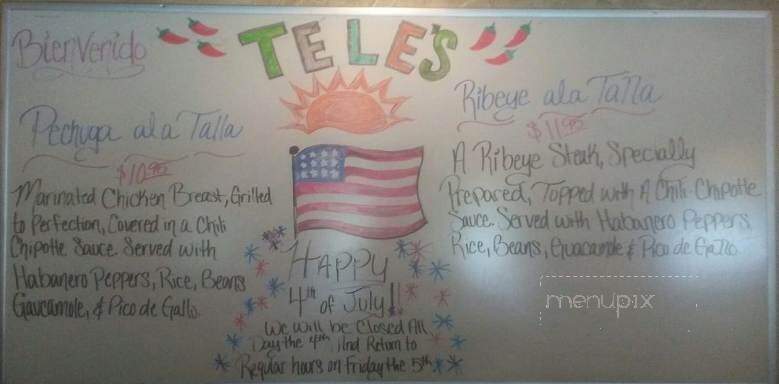 Bienvenido
TELE'S
Pechuga ala Talla
$10.95
Marinated Chicken Breast, Grilled
to Perfection, Covered in a Chili
Chipotle Sauce. Served with
Habanero Peppers, Rice, Beans
Gaucamole, & Pico de Gallo.
HAPPY
4th of July!!
We will be Closed All
Day the 4th And Return to
Regular hours on Friday the 5th
Ribeye ala Talla
$11.95
A Ribeye Steak, Specially
Prepared, Topped with A Chili Chipotle
Sauce. Served with Habanero Peppers,
Rice, Beans, Guacamole & Pico de Gallo.
menupix